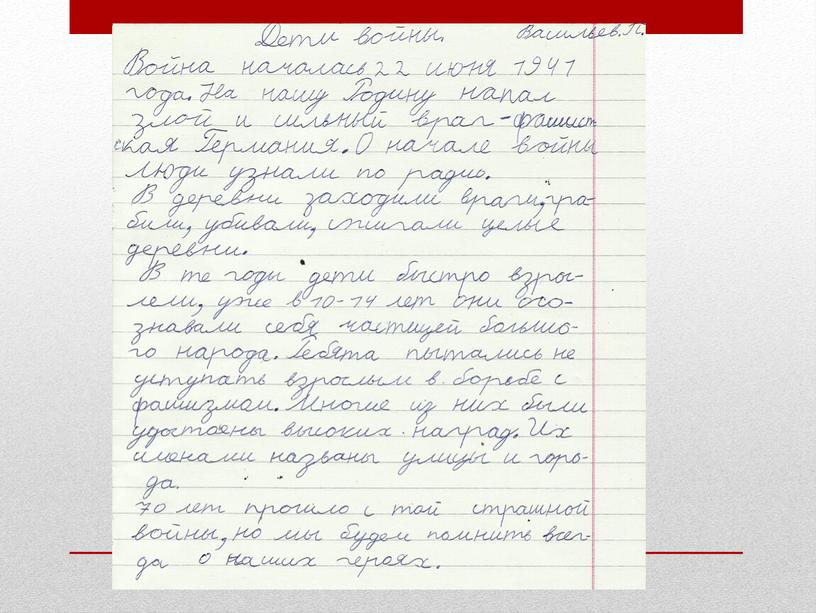 Дети войны. Васильев.П.
Война началась 22 июня 1941
года. На нашу Родину напал
злой и сильный враг - фашист
ская Германия. О начале войны
люди узнали по радио.
В деревни заходили враги, гра-
били, убивали, сжигали целые
деревни.
В те годы дети быстро взрос-
лели, уже в 10-14 лет они осо-
знавали себя частицей большо-
го народа. Ребята пытались не
уступать взрослым в борьбе с
фашизмом. Многие из них были
удостоены высоких наград. Их
именами названы улицы и горо-
да.
70 лет прошло с той страшной
войны, но мы будем помнить всег-
да о наших героях.